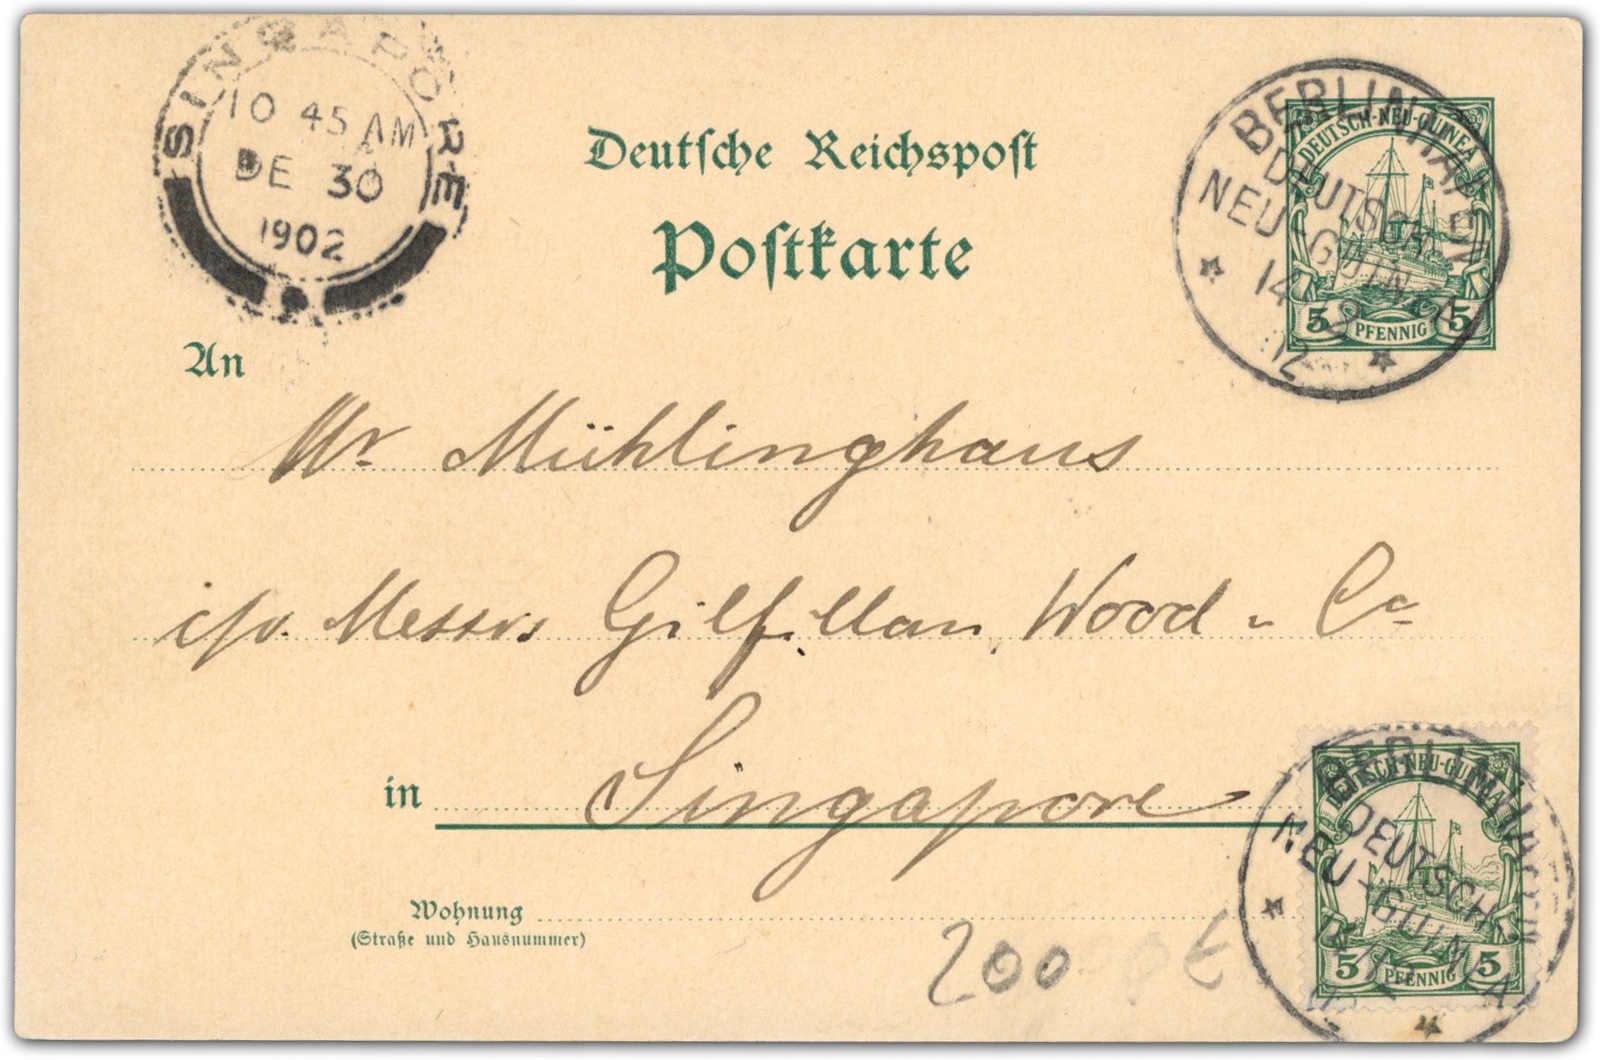 SINGAPORE
10 45 AM
DE 30
1902
Deutsche Reichspost
Postkarte
BERLINHAFEN
DEUTSCH-
NEU-GUINEA
14
02
DEUTSCH-NEU-GUINEA
5 PFENNIG 5
An
Mr. Mühlinghaus
c/o. Messrs Gilfillan, Wood u Co
in Singapore
Wohnung
(Straße und Hausnummer)
200
BERLINHAFEN
DEUTSCH-
NEU-GUINEA
DEUTSCH-NEU-GUINEA
5 PFENNIG 5